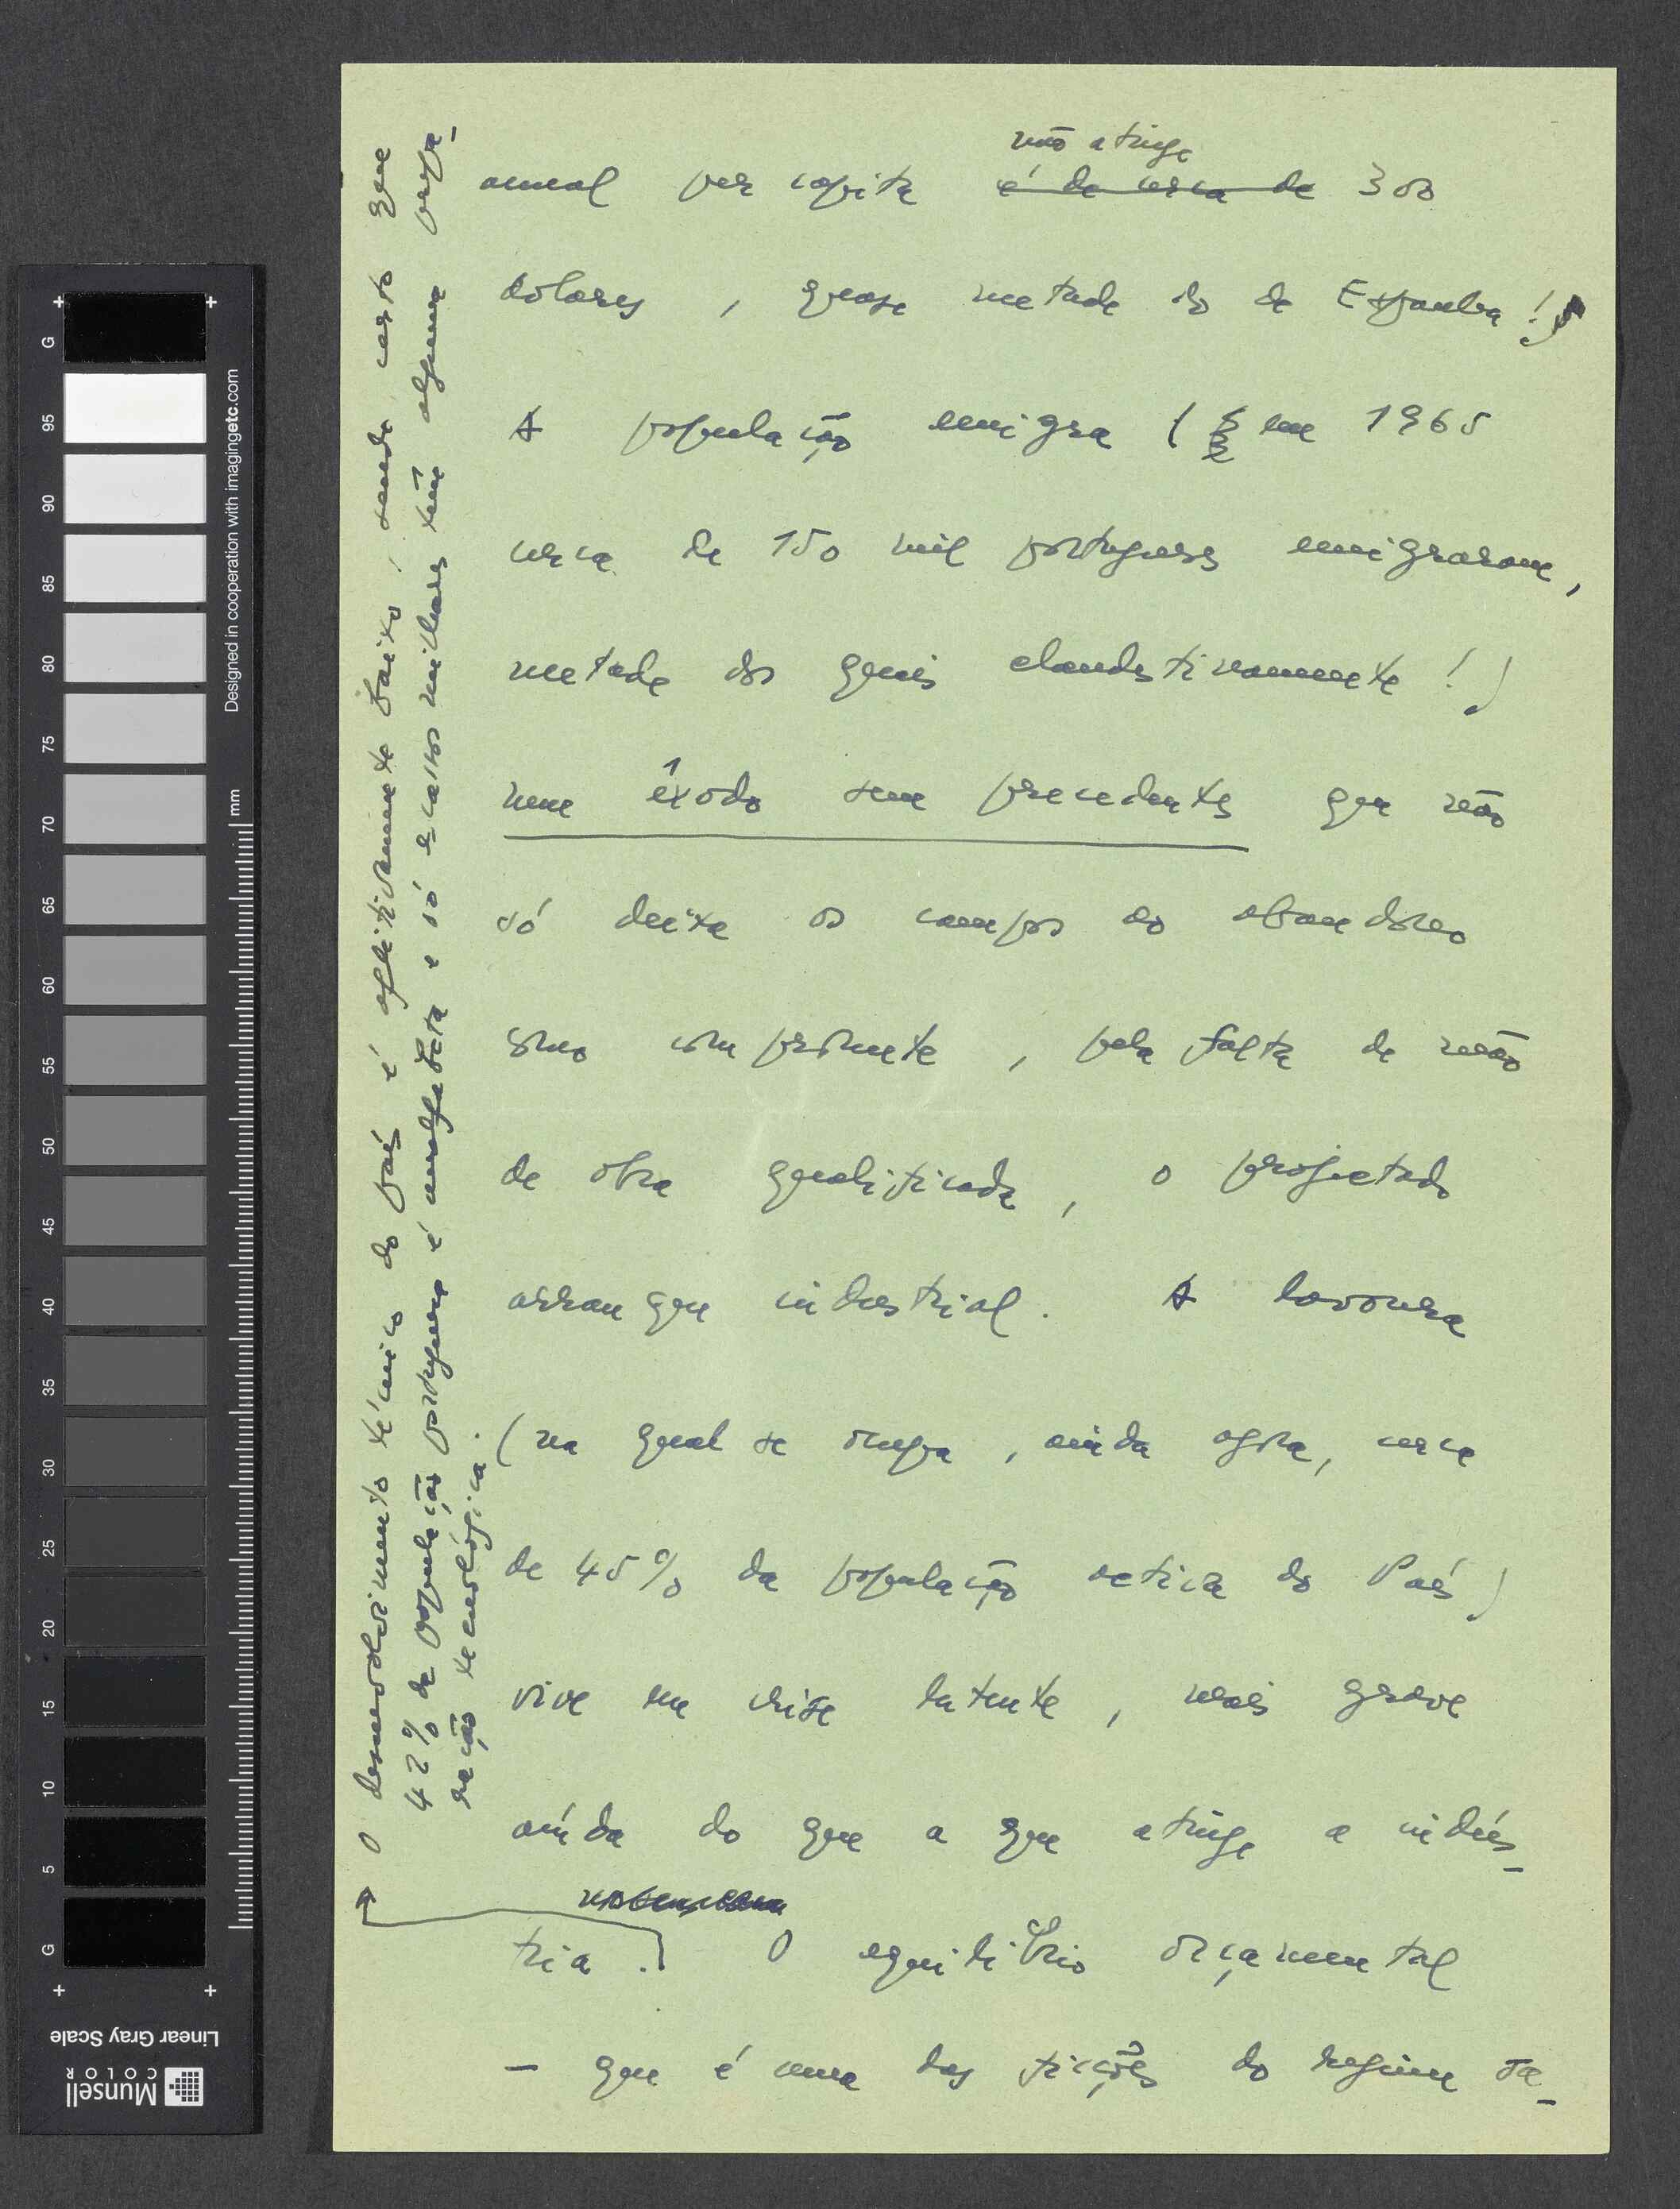 não atinge
anual per capita é de cerca de 300
dólares, quase metade do da Espanha!)
A população emigra (em 1965
cerca de 150 mil portugueses emigraram,
metade dos quais clandestinamente!)
num êxodo sem precedentes que não
só deixa os campos ao abandono
como compromete, pela falta de mão
de obra qualificada, o projectado
arranque industrial. A lavoura
(na qual se ocupa, ainda agora, cerca
de 45% da população activa do País)
vive em crise latente, mais grave
ainda do que a que atinge a indús-
tria. O equilíbrio orçamental
- que é uma das ficções do regime sa-
O desenvolvimento técnico do país é aflitivamente baixo, sendo certo que
42% da população portuguesa é analfabeta e só escassos milhares têm alguma prepa-
ração tecnológica.
G 95 90 85 80 75 70 65 60 55 50 45 40 35 30 25 20 15 10 5 G
mm
Designed in cooperation with imagingetc.com
Linear Gray Scale
Munsell
COLOR